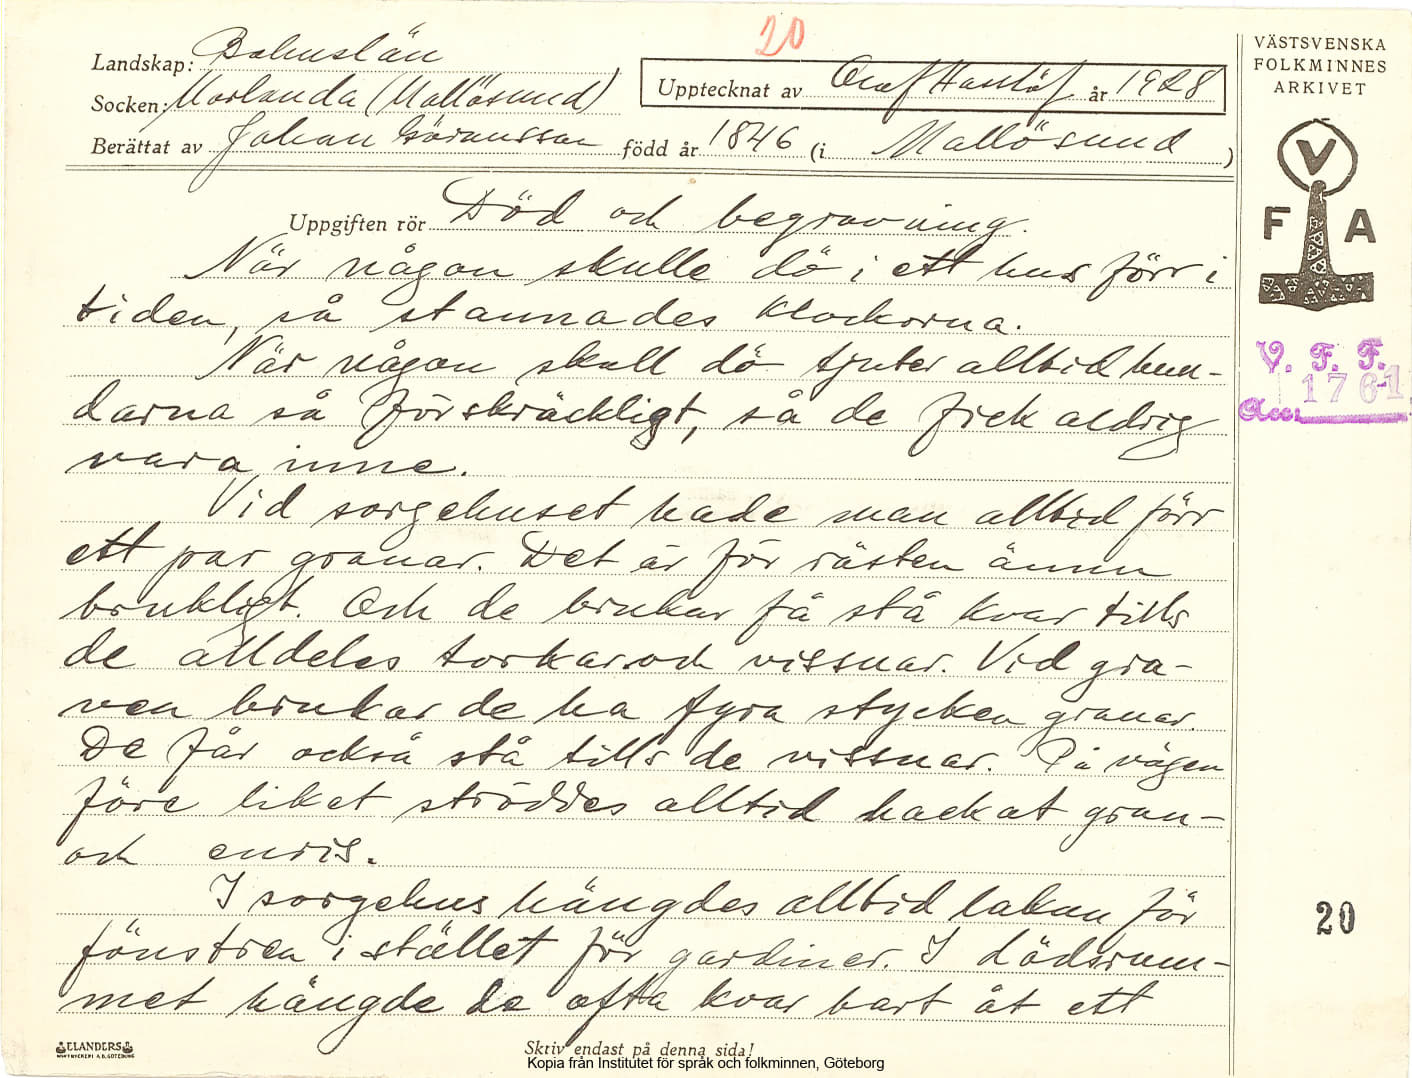 20
Landskap: Bohuslän
Socken: Morlanda (Mollösund)
Upptecknat av Olof Hasslöf år 1928
Berättat av Johan Göransson född år 1846 (i Mollösund)
Uppgiften rör Död och begravning.
När någon skulle dö i ett hus förr i
tiden, så stannades klockorna.
När någon skall dö tjuter alltid hun-
darna så förskräckligt, så de fick aldrig
vara inne.
Vid sorgehuset hade man alltid förr
ett par granar. Det är för rästen ännu
brukligt. Och de brukar få stå kvar tills
de alldeles torkar och vissnar. Vid gra-
ven brukar de ha fyra stycken granar.
De får också stå tills de vissnar. På vägen
före liket ströddes alltid hackat gran-
och enris.
I sorgehus hängdes alltid lakan för
fönstren i stället för gardiner. I dödsrum-
met hängde de ofta kvar bart åt ett
VÄSTSVENSKA
FOLKMINNES
ARKIVET
V
F A
V. F. F.
Acc. 1761
20
ELANDERS
BOKTRYCKERI A.B. GÖTEBORG
Skriv endast på denna sida!
Kopia från Institutet för språk och folkminnen, Göteborg